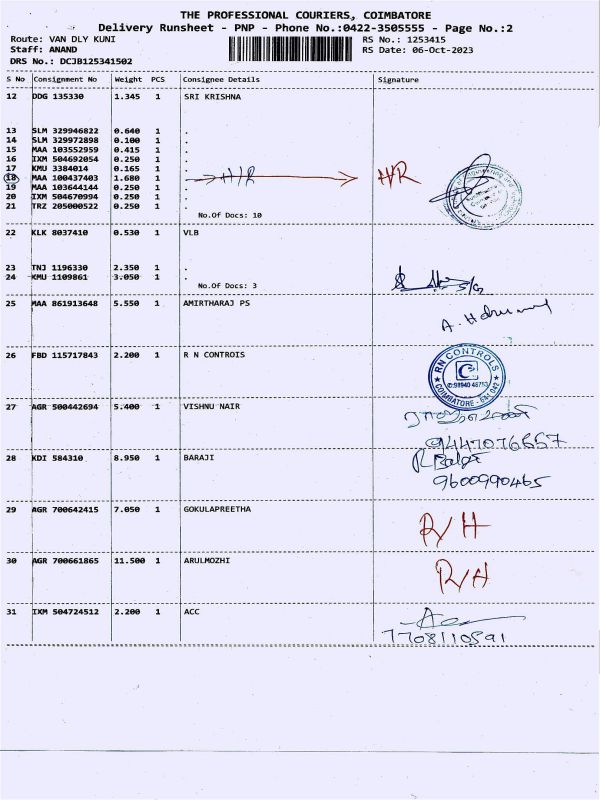 THE PROFESSIONAL COURIERS, COIMBATORE
Delivery Runsheet - PNP - Phone No.:0422-3505555 - Page No.:2
Route: VAN DLY KUNI RS No.: 1253415
Staff: ANAND RS Date: 06-Oct-2023
DRS No.: DCJB125341502
S No Consignment No Weight PCS Consignee Details Signature
12 DDG 135330 1.345 1 SRI KRISHNA
13 SLM 329946822 0.640 1 .
14 SLM 329972898 0.100 1 .
15 MAA 103552959 0.415 1 .
16 IXM 504692054 0.250 1 .
17 KMU 3384014 0.165 1 .
18 MAA 100437403 1.680 1 . H/R H/R
19 MAA 103644144 0.250 1 .
20 IXM 504670994 0.250 1 .
21 TRZ 205000522 0.250 1 .
No.Of Docs: 10
22 KLK 8037410 0.530 1 VLB
23 TNJ 1196330 2.350 1 .
24 KMU 1109861 3.050 1 .
No.Of Docs: 3
25 MAA 861913648 5.550 1 AMIRTHARAJ PS
26 FBD 115717843 2.200 1 R N CONTROlS
RN CONTROLS
COIMBATORE - 641 042
27 AGR 500442694 5.400 1 VISHNU NAIR
9447076557
28 KDI 584310 8.950 1 BARAJI
R Balaji
9600990465
29 AGR 700642415 7.050 1 GOKULAPREETHA
R/H
30 AGR 700661865 11.500 1 ARULMOZHI
R/H
31 IXM 504724512 2.200 1 ACC
7708110591